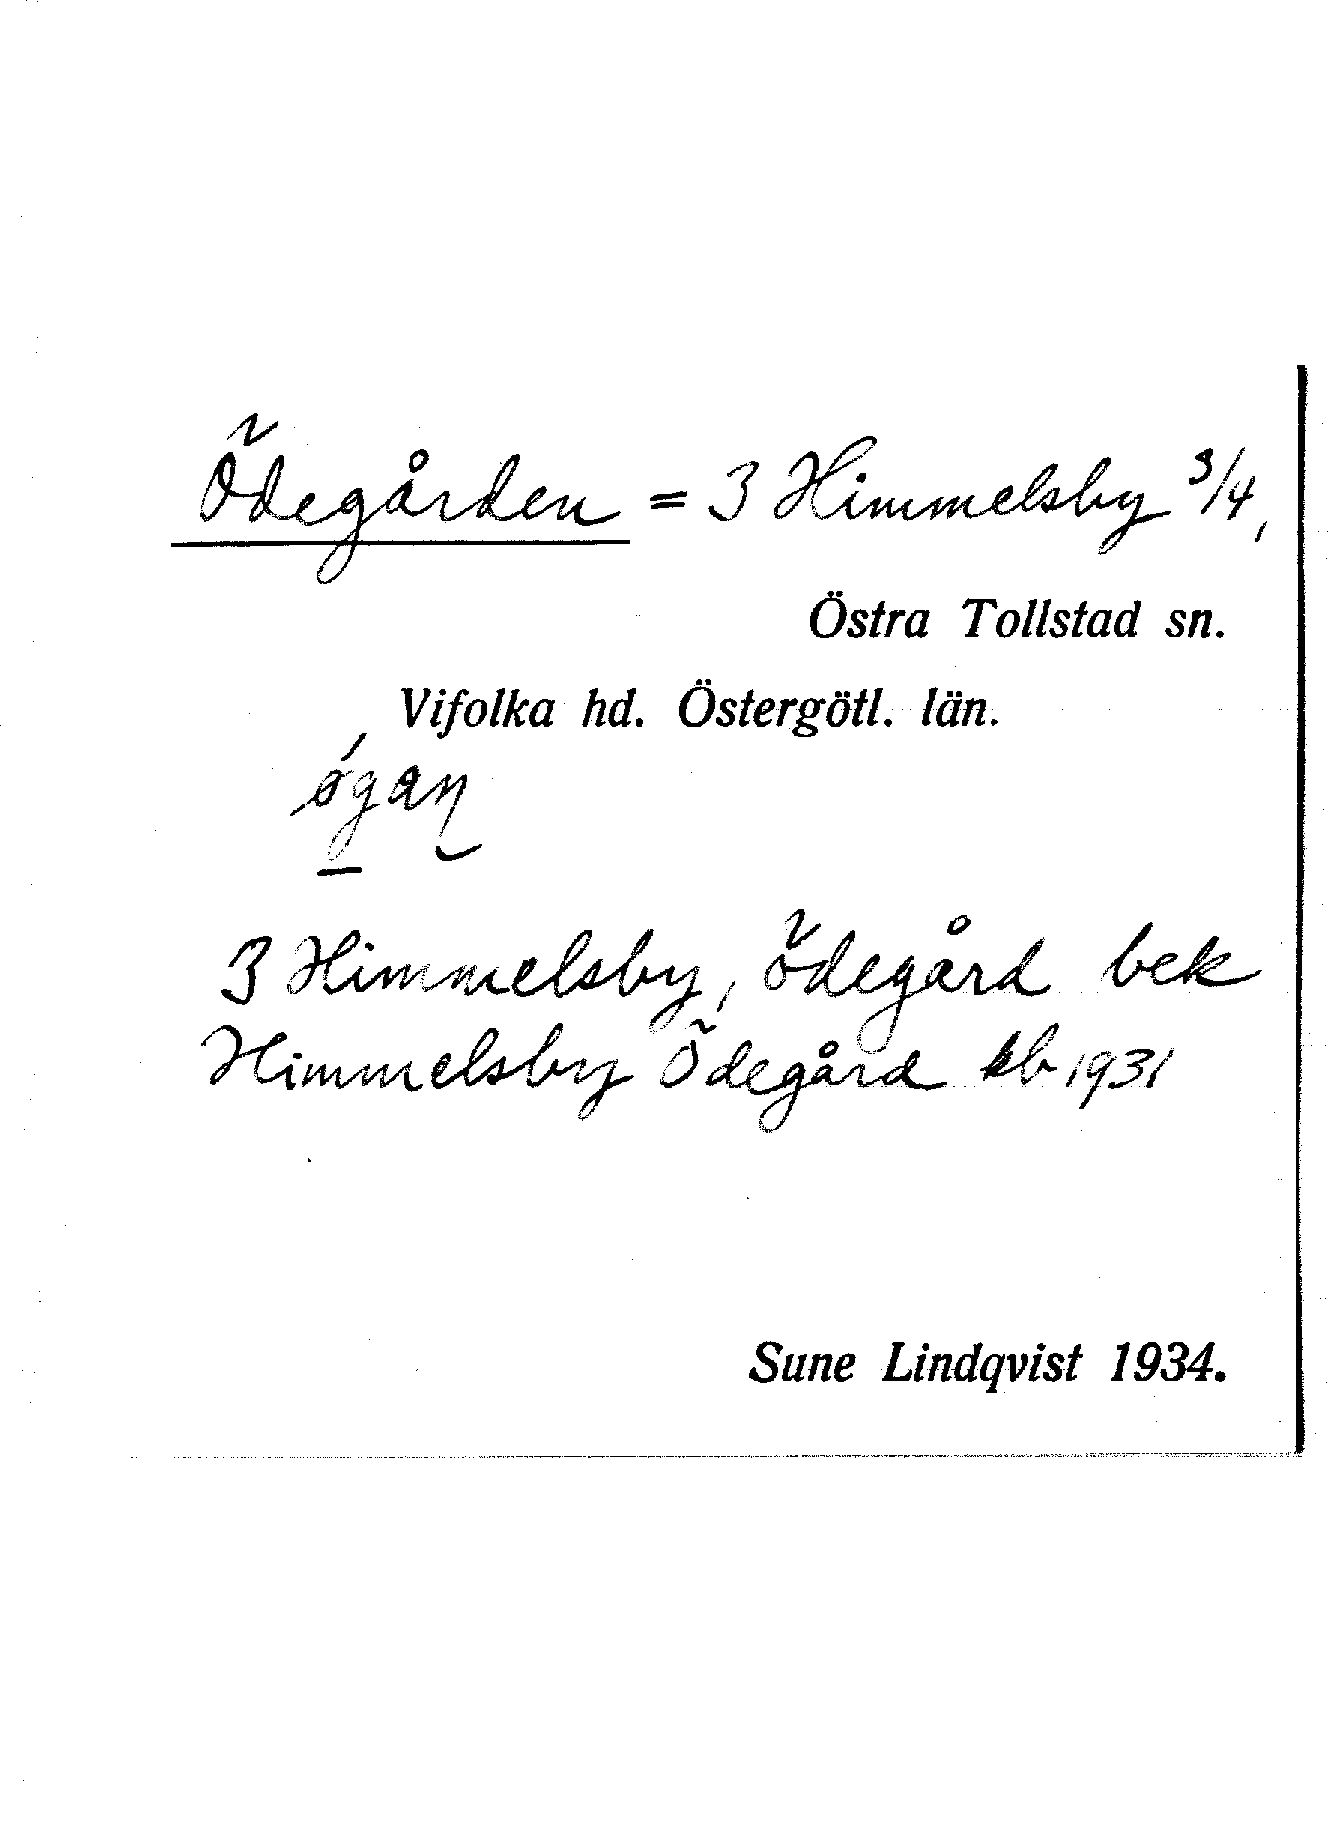 Ödegården = 3 Himmelsby 3/4,
Östra Tollstad sn.
Vifolka hd. Östergötl. län.
3 Himmelsby, ödegård bek
Himmelsby Ödegård kb 1931
Sune Lindqvist 1934.